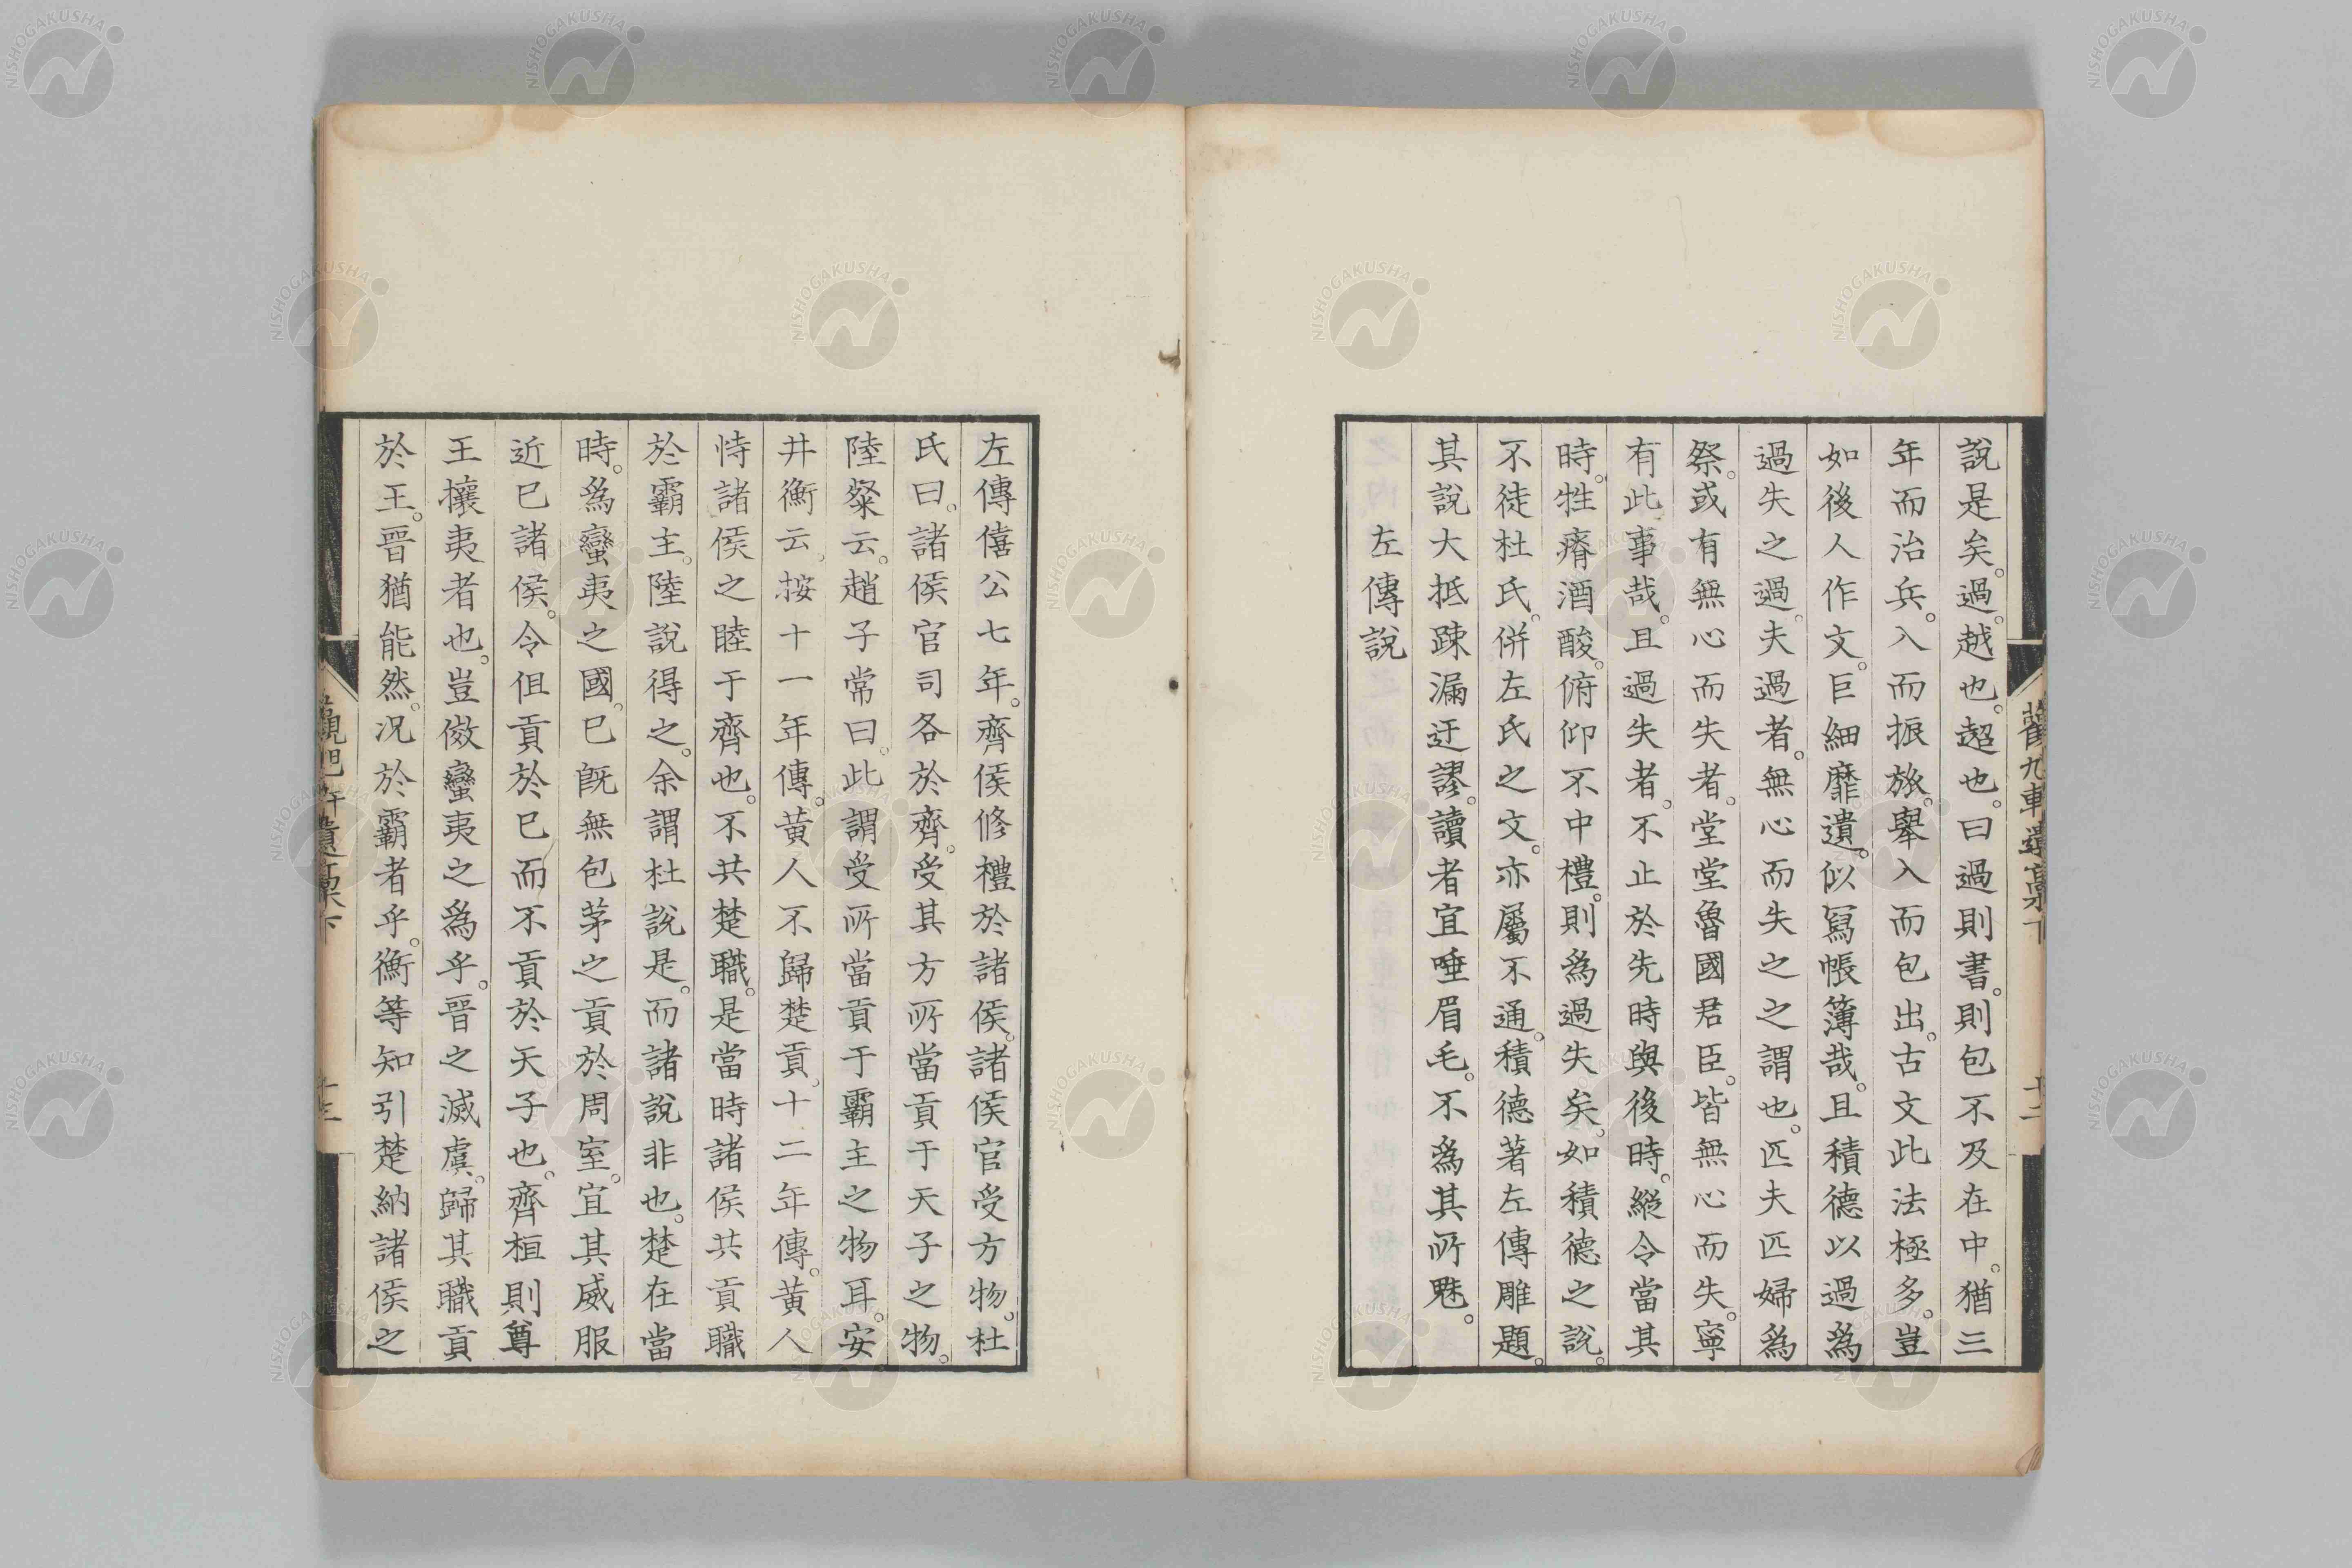 說是矣。過。越也。超也。曰過則書。則包不及在中。猶三
年而治兵。入而振旅。舉入而包出。古文此法極多。豈
如後人作文。巨細靡遺。似寫帳簿哉。且積德以過為
過失之過。夫過者。無心而失之之謂也。匹夫匹婦為
祭。或有無心而失者。堂堂魯國君臣。皆無心而失。寧
有此事哉。且過失者。不止於先時與後時。縱令當其
時。牲瘠酒酸。俯仰不中禮。則為過失矣。如積德之說。
不徒杜氏。併左氏之文。亦屬不通。積德著左傳雕題。
其說大抵踈漏迂謬。讀者宜唾眉毛。不為其所魅。
左傳說
左傳僖公七年。齊侯修禮於諸侯。諸侯官受方物。杜
氏曰。諸侯官司各於齊。受其方所當貢于天子之物。
陸粲云。趙子常曰。此謂受所當貢于霸主之物耳。安
井衡云。按十一年傳。黃人不歸楚貢。十二年傳。黃人
恃諸侯之睦于齊也。不共楚職。是當時諸侯共貢職
於霸主。陸說得之。余謂杜說是。而諸說非也。楚在當
時。為蠻夷之國。已旣無包茅之貢於周室。宜其威服
近已諸侯。令但貢於已而不貢於天子也。齊桓則尊
王攘夷者也。豈傚蠻夷之為乎。晉之滅虞。歸其職貢
於王。晉猶能然。况於霸者乎。衡等知引楚納諸侯之
NISHOGAKUSHA